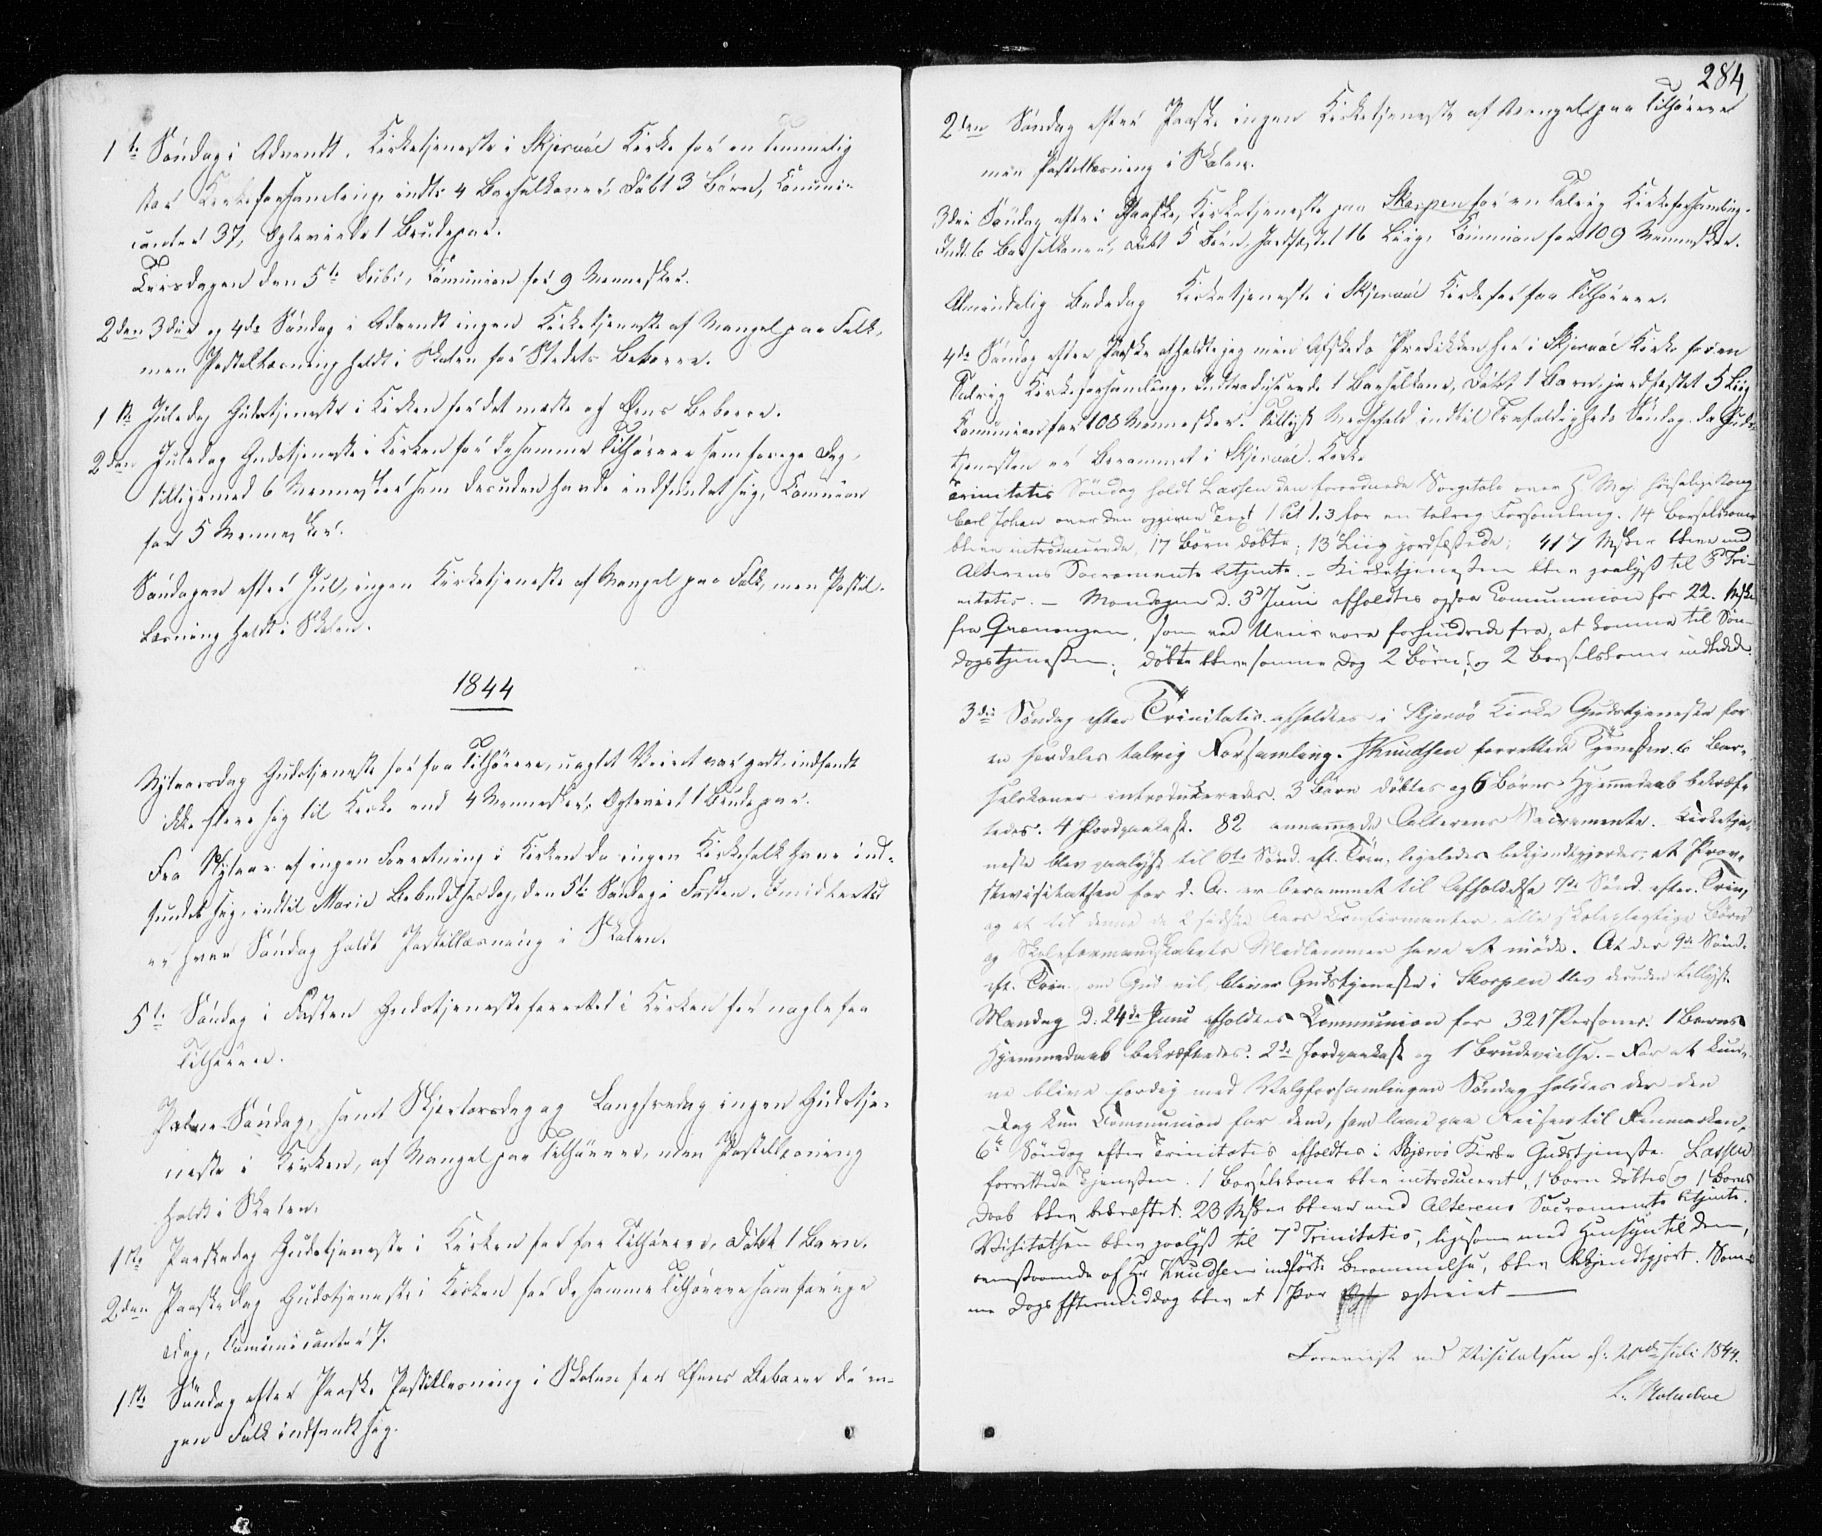 1te Søndag i Advendt. Kirketjeneste i Skjervøe Kirke for en temmelig
stor Kirkeforsamling, indts 4 Barselkoner, døbt 3 Børn, Comuni-
canter 37, Egteviedt 1 Brudepar.
Tirsdagen den 5te Decbr, Comunion for 9 Mennesker.
2den 3die og 4de Søndag i Advendt ingen Kirketjeneste af Mangel paa Folk,
men Postillæsning holdt i Skolen for Stedets Beboere.
1ste Juledag Gudstjeneste i Kirken for det meste af Øens Beboere.
2den Juledag Gudstjeneste i Kirken for de samme Tilhørere som forrige Dag,
tilligemed 6 Mennesker som desuden havde indfundet sig, Comunion
for 5 Mennesker.
Søndagen efter Jul, ingen Kirketjeneste af Mangel paa Folk, men Postil-
læsning holdt i Skolen.
1844
Nytaarsdag Gudstjeneste for faa Tilhørere, uagtet Veiret var godt, indfandt
ikke flere sig til Kirke end 4 Mennesker, Egteviet 1 Brudepar.
Fra Nytaar af ingen Forretning i Kirken da ingen Kirkefolk have ind-
fundet sig, indtil Marie Bebudelsesdag, den 5te Søndag i Fasten. Imidlertid
er hver Søndag holdt Postillæsning i Skolen.
5te Søndag i Fasten Gudstjeneste forrettet i Kirken for nogle faa
Tilhørere.
Palme Søndag, samt Skjertorsdag og Langfredag ingen Gudstje-
neste i Kirken, af Mangel paa Tilhørere, men Postillæsning
holdt i Skolen.
1ste Paaskedag Gudstjeneste i Kirken for faa Tilhørere, døbt 1 Barn.
2den Paaskedag Gudstjeneste i Kirken for de samme Tilhørere som forrige
Dag, Comunicanter 7.
1ste Søndag efter Paaske Postillæsning i Skolen for Øens Beboere da in-
gen Folk indfandt sig.
284
2den Søndag efter Paaske ingen Kirketjeneste af Mangel paa Tilhørere
men Postillæsning i Skolen.
3die Søndag efter Paaske, Kirketjeneste paa Skorpen for en talrig Kirkeforsamling.
Indt. 6 Barselkoner, døbt 5 Børn, Jordfæstet 16 Liig, Comunion for 109 Mennesker.
Almindelig Bededag Kirketjeneste i Skjervøe Kirke for faa Tilhørere.
4de Søndag efter Paaske afholdt jeg min Afskeds Prædikken her i Skjervøe Kirke for en
talrig Kirkeforsamling. Introducerede 1 Barselkone, døbt 1 Barn, jordfæstet 5 Liig
Comunion for 108 Mennesker. Tillyst Messefald indtil Trefoldigheds Søndag da Guds-
tjenesten er berammet i Skjervøe Kirke
Trinitatis Søndag holdt Lassen den forordnede Sørgetale over H. Maj. høisalige Kong
Carl Johan over den opgivne Text 1 Pet 1.3 for en talrig Forsamling. 14 Barselkoner
bleve introducerede, 17 Børn døbte; 13 Liig jordfæstede; 417 Msker bleve med
Alterens Sacramente betjente. - Kirketjenesten blev paalyst til 3d Tri-
nitatis. - Mandagen d. 3d Juni afholdtes ogsaa Communion for 22. Msker
fra Qvænangen, som ved Uveir vare forhindrede fra, at komme til Søn-
dagstjenesten; døbte bleve samme Dag 2 Børn, og 2 Barselkoner indledede.
3die Søndag efter Trinitatis afholdtes i Skjervø Kirke Gudstjeneste for
en særdeles talrig Forsamling. Knudsen forrettede Tjenesten. 6 Bar-
selskoner introduceredes. 3 Børn døbtes og 6 Børns Hjemmedaab bekræf-
tedes. 4 Jordpaakast. 82 annammede Alterens Sacramente. Kirketje-
neste blev paalyst til 6te Sønd. eft. Trin, ligeledes bekjendtgjordes, at Prov-
stevisitatsen for d. A. er berammet til Afholdelse 7de Sønd. efter Trin,
og at til denne de 2 sidste Aars Confirmanter, alle skolepligtige Børn
og Skoleformandskabets Medlemmer have at møde. At der 9de Sønd.
eft. Trin. om Gud vil, bliver Gudstjeneste i Skorpen blev desuden tillyst.
Mandag d: 24de Juni afholdtes Communion for 321 Personer. 1 Barns
Hjemmedaab bekræftedes. 2de Jordpaakast og 1 Brudevielse. - For at kun-
ne blive færdig med Valgforsamlingen Søndag holdtes der den
Dag kun Communion for dem, som laae paa Reisen til Finmarken.
6te Søndag efter Trinitatis afholdtes i Skjervø Kirke Gudstjeneste. Lassen
forrettede Tjenesten. 1 Barselskone blev introduceret, 1 Barn døbtes og 1 Barns
Daab blev bekræftet. 23 Msker bleve med Alterens Sacramente betjente.
Visitatsen blev paalyst til 7d Trinitatis, ligesom med Hensyn til den,
ovenstaaende af Hr Knudsen indførte Berammelse, blev bekjendtgjort. Sam-
me Dags Eftermiddag blev et 1 Par egteviet
Foreviist ved Visitatsen d: 21de Juli 1844.
L. Holmboe